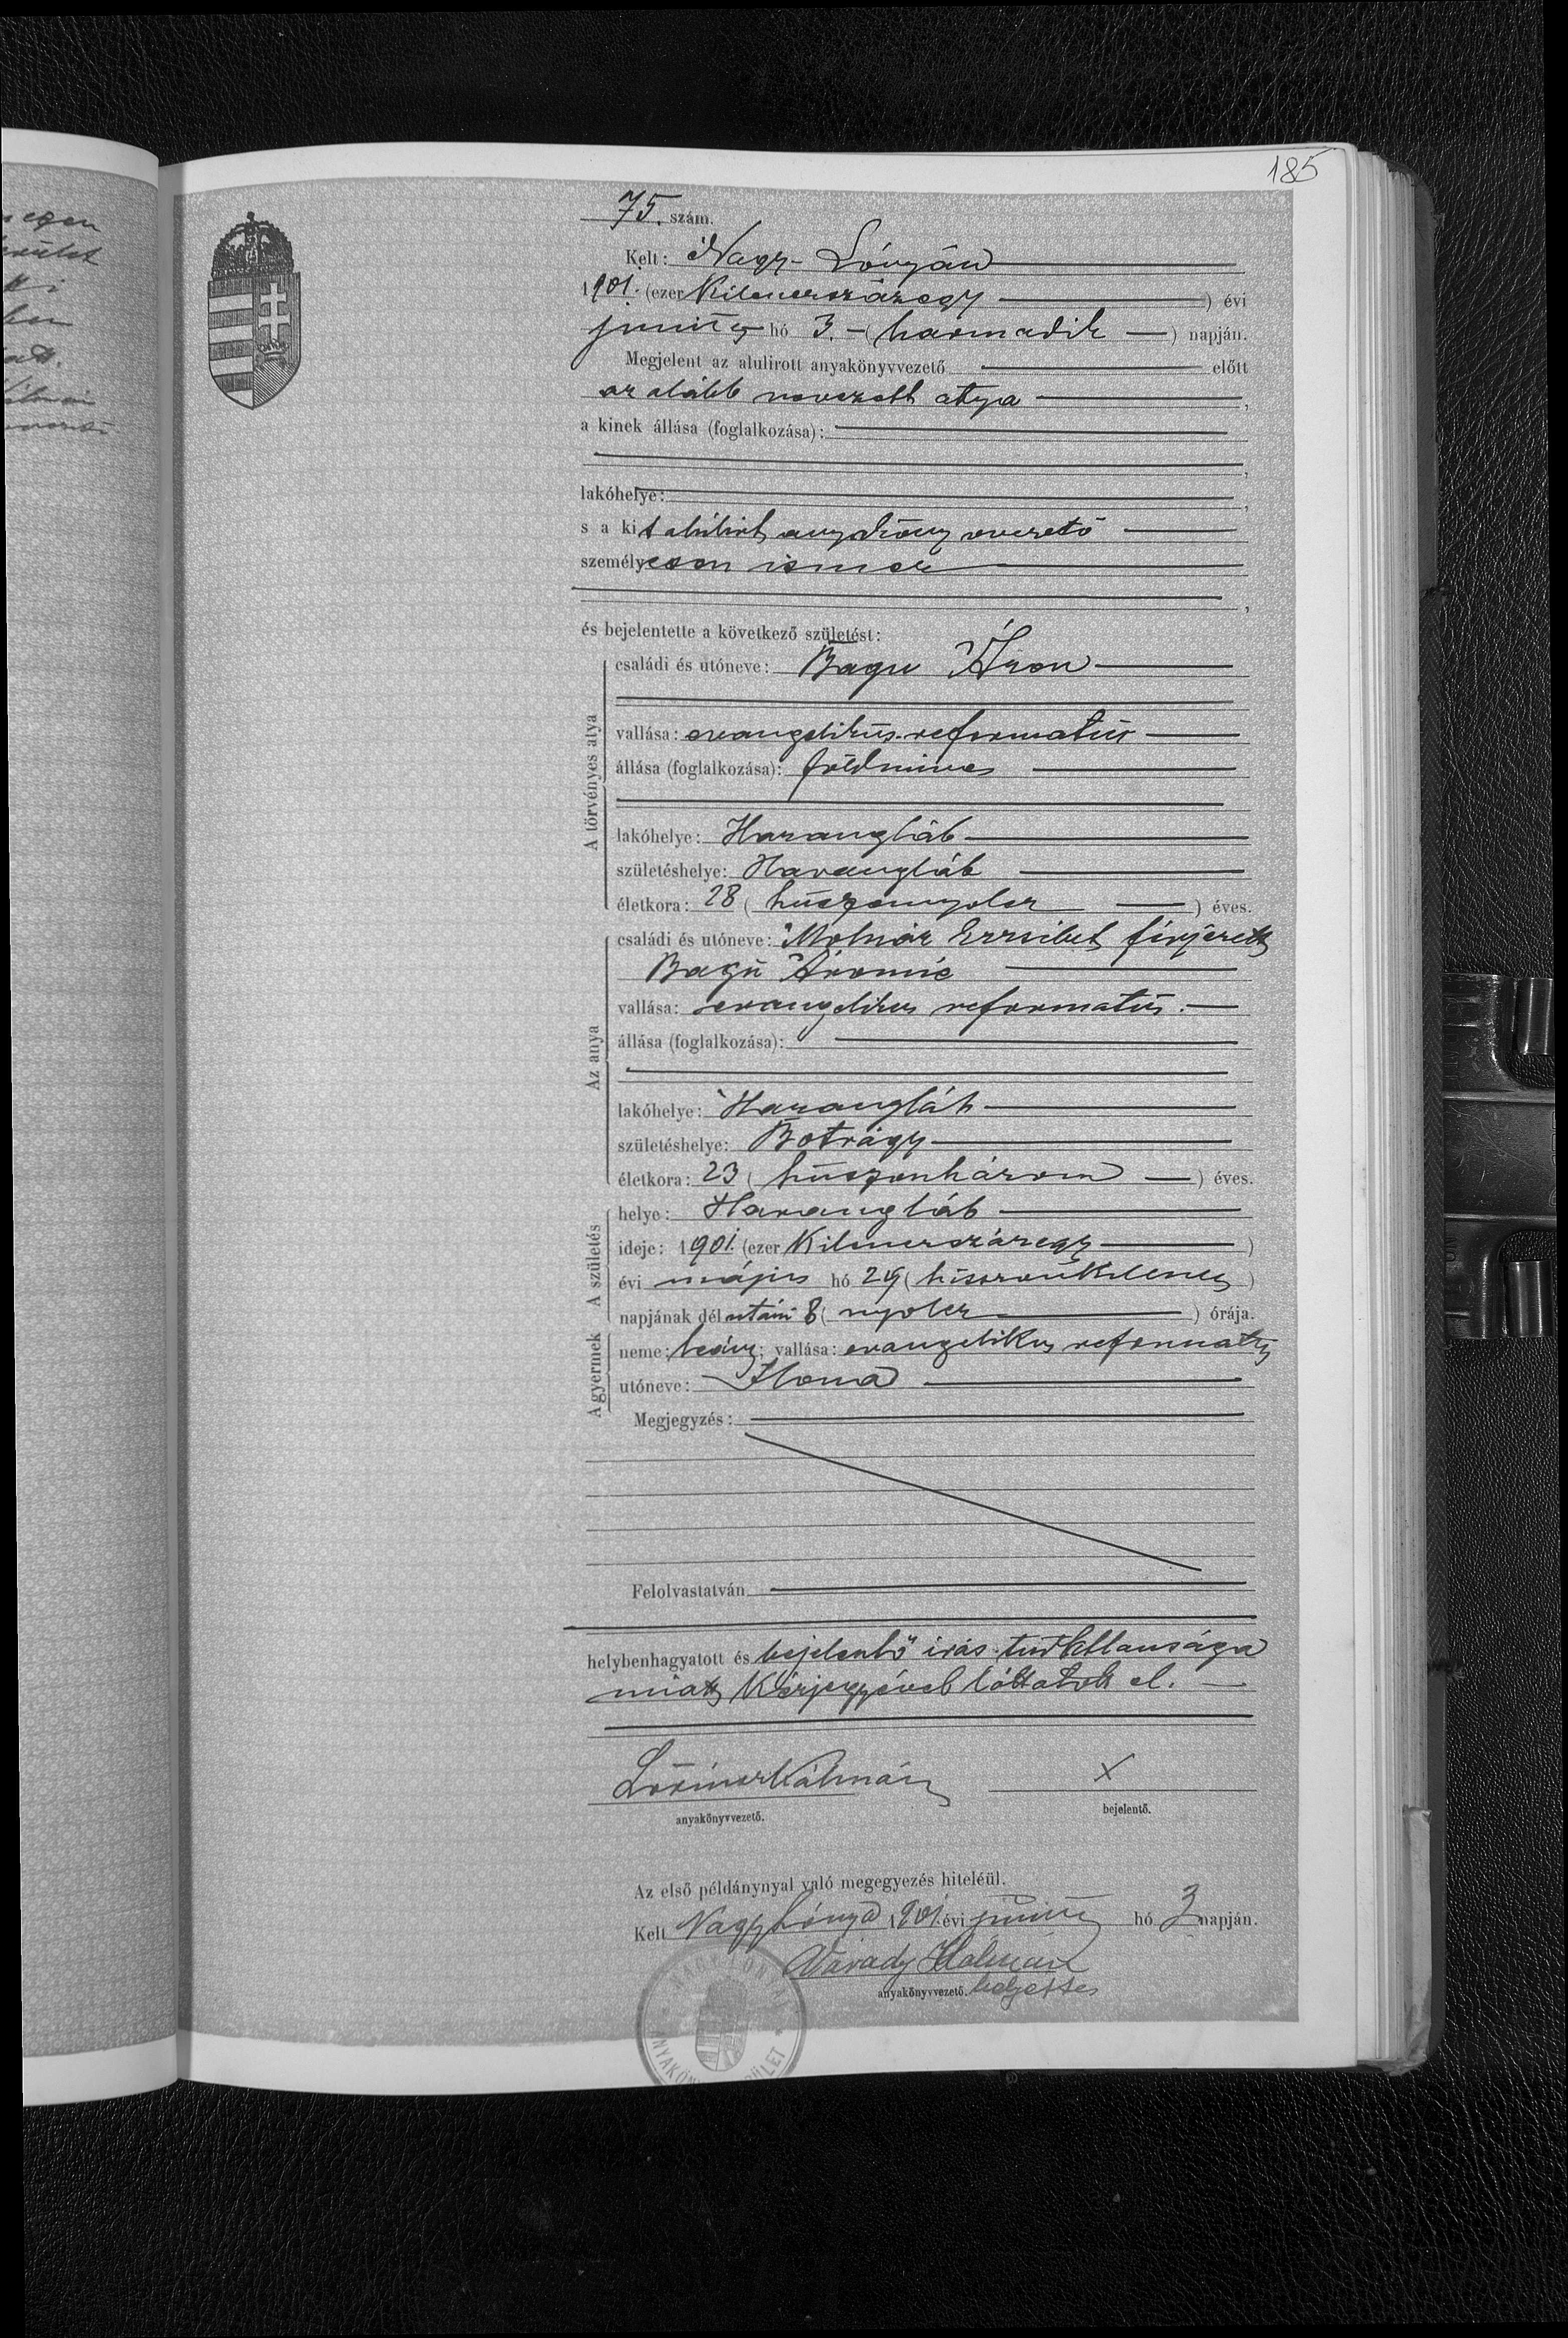 185
75. szám.
Kelt: Nagy-Lónyán
1901. (ezer Kilenczszázegy) évi
junius hó 3. (harmadik) napján.
Megjelent az alulirott anyakönyvvezető előtt
az alább nevezett atya,
a kinek állása (foglalkozása):
lakóhelye:
s a kit alulirt anyakönyvvezető
személyesen ismer
és bejelentette a következő születést:
A törvényes atya
családi és utóneve: Bagu Áron
vallása: evangelikus reformatus
állása (foglalkozása): földmives
lakóhelye: Harangláb
születéshelye: Harangláb
életkora: 28 (huszonnyolcz) éves.
Az anya
családi és utóneve: Molnár Erzsébet férjezett
Bagu Áronné
vallása: evangelikus reformatus.
állása (foglalkozása):
lakóhelye: Harangláb
születéshelye: Botrágy
életkora: 23 (huszonhárom) éves.
A születés
helye: Harangláb
ideje: 1901. (ezer Kilenczszázegy)
évi május hó 29 (huszonkilencz)
napjának délután 8 (nyolcz) órája.
A gyermek
neme: leány; vallása: evangelikus reformatus
utóneve: Ilona
Megjegyzés:
Felolvastatván
helybenhagyatott és bejelentő irás-tudatlansága
miatt Kézjegyével láttatott el.
Lőrincz Kálmán x
anyakönyvvezető. bejelentő.
Az első példánynyal való megegyezés hiteléül.
Kelt Nagy Lónya 1901. évi junius hó 3 napján.
Várady Kálmán
anyakönyvvezető. helyettes